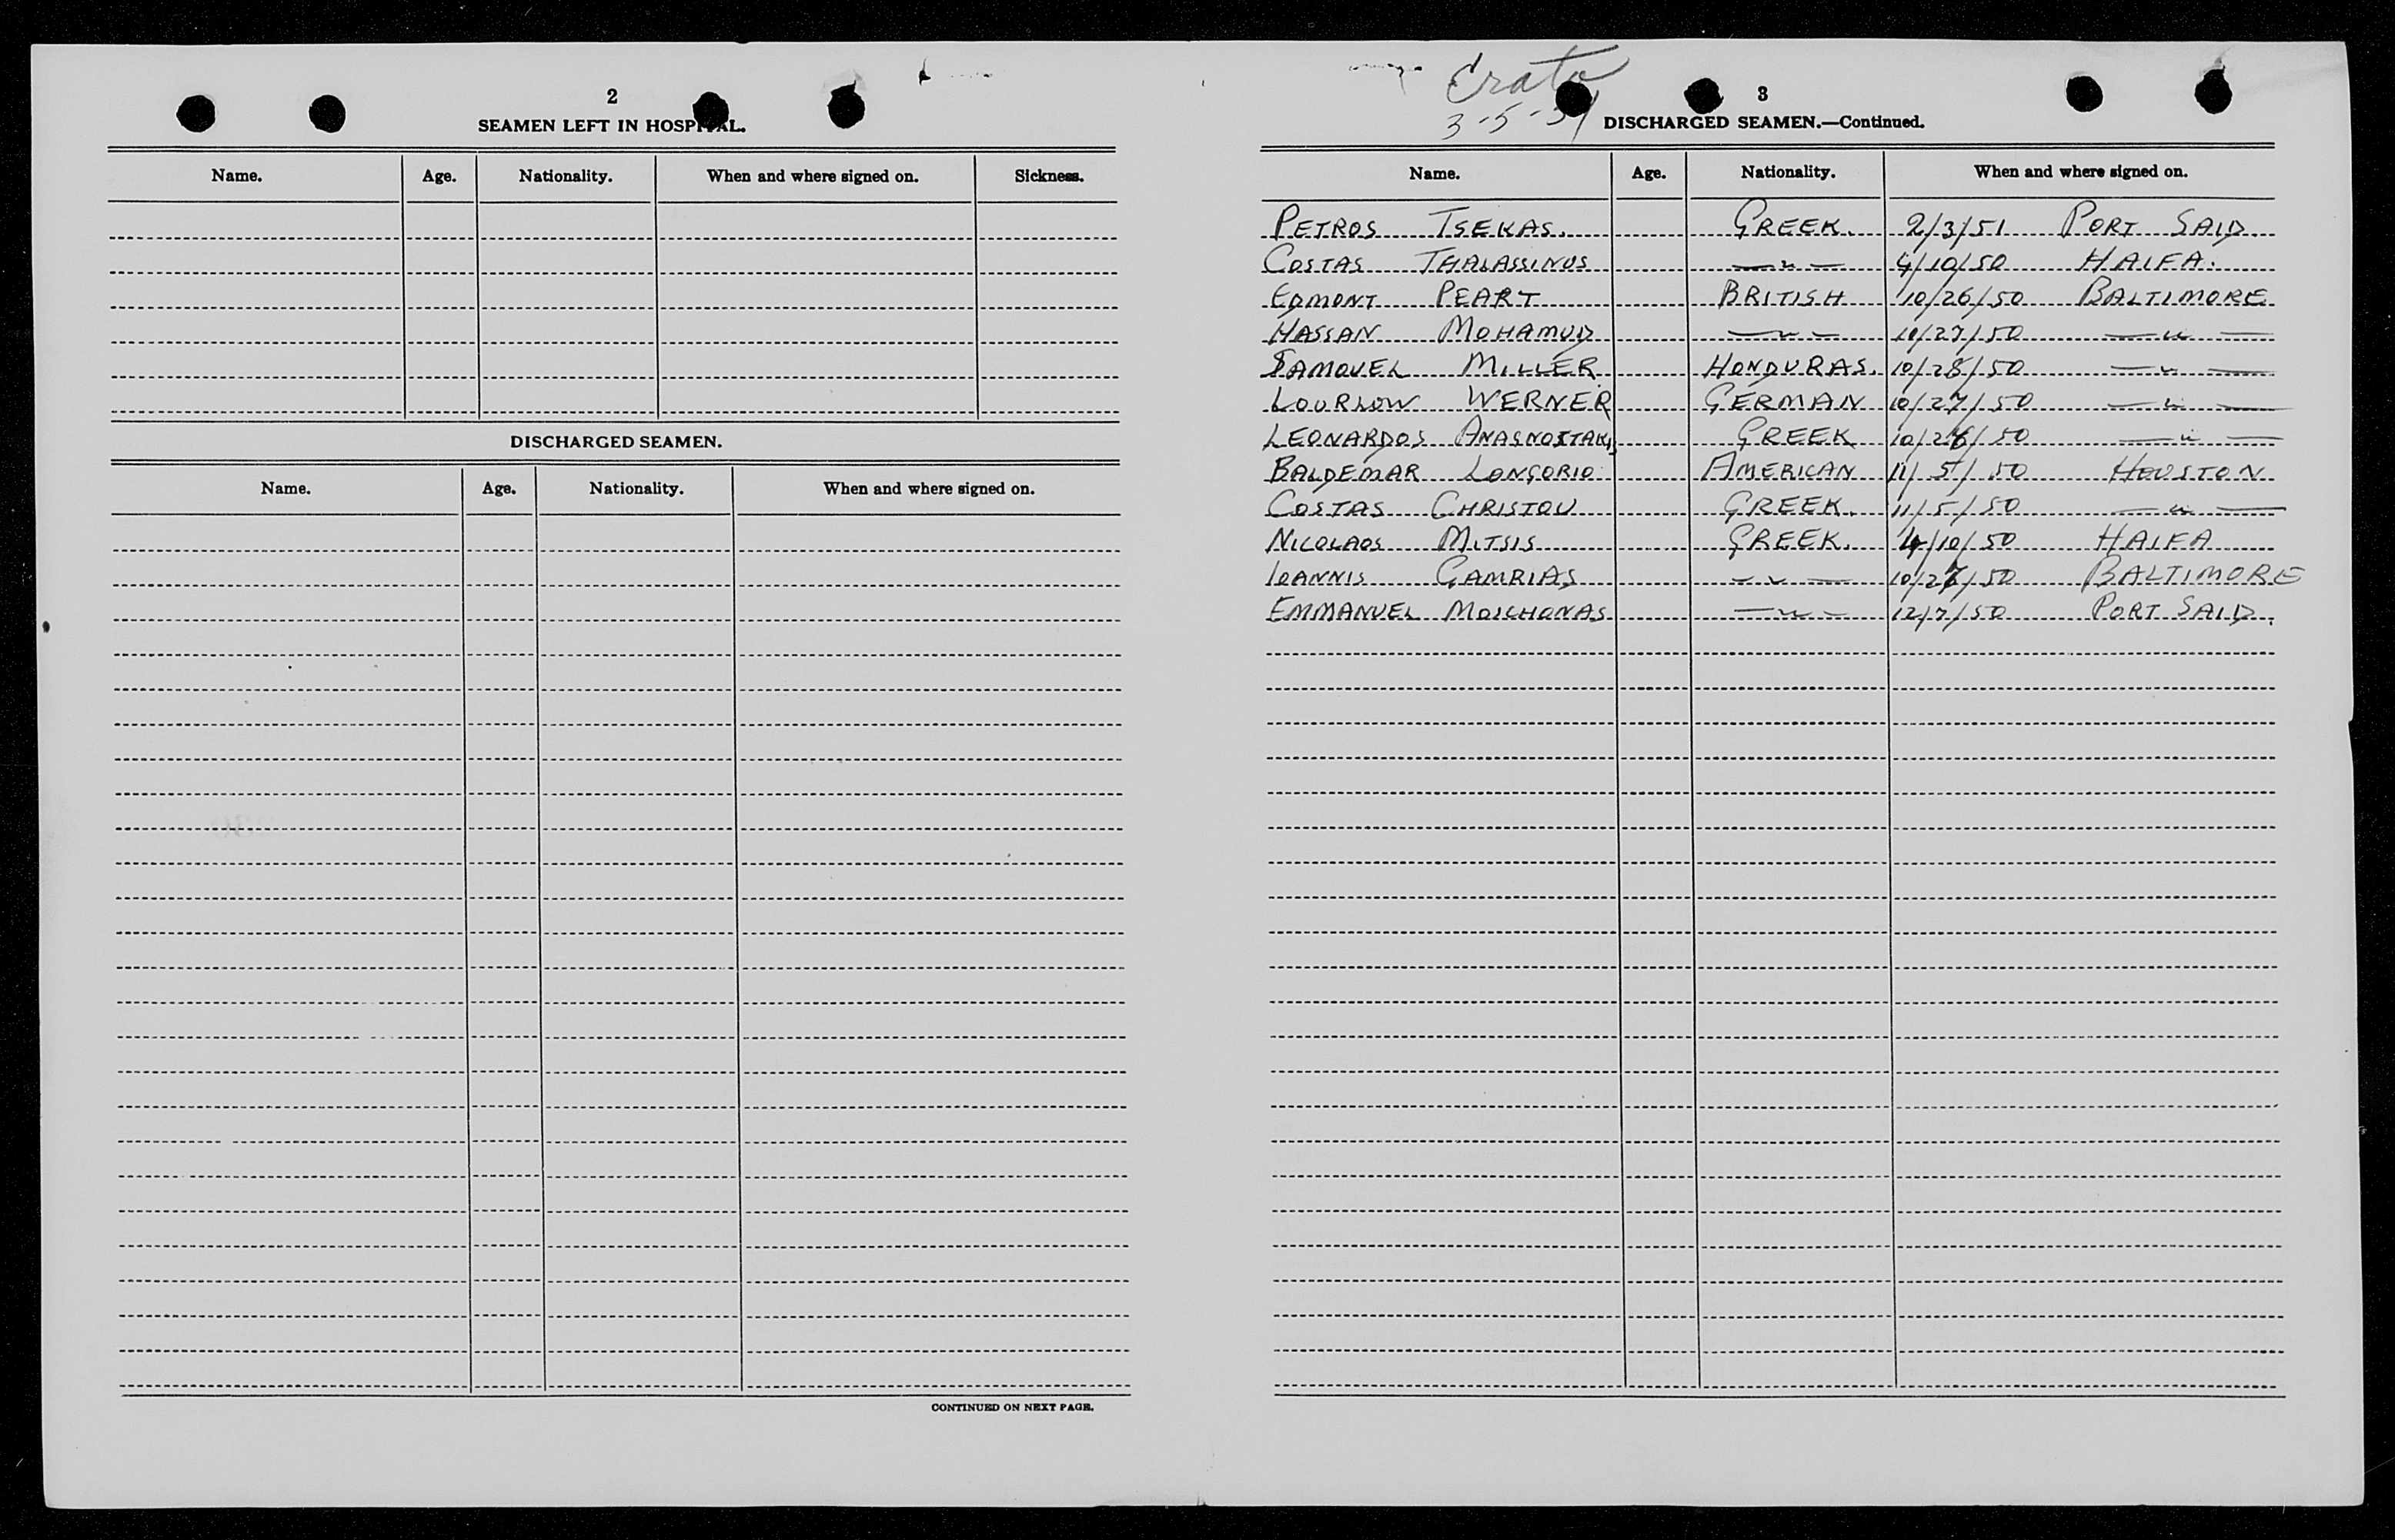 2
SEAMEN LEFT IN HOSPITAL.
Name. Age. Nationality. When and where signed on. Sickness.
DISCHARGED SEAMEN.
Name. Age. Nationality. When and where signed on.
CONTINUED ON NEXT PAGE.
Erato
3-5-51
3
DISCHARGED SEAMEN.—Continued.
Name. Age. Nationality. When and where signed on.
PETROS TSEKAS. GREEK. 2/3/51 PORT SAID.
COSTAS THALASSINOS —"— 4/10/50 HAIFA.
EDMONT PEART BRITISH 10/26/50 BALTIMORE
HASSAN MOHAMUD —"— 10/27/50 —"—
SAMOUEL MILLER. HONDURAS. 10/28/50 —"—
LOURLOW WERNER GERMAN 10/27/50 —"—
LEONARDOS ANAGNOSTAKIS GREEK 10/28/50 —"—
BALDEMAR LONGORIO AMERICAN 11/5/50 HOUSTON
COSTAS CHRISTOU GREEK. 11/5/50 —"—
NICOLAOS MITSIS GREEK. 4/10/50 HAIFA
IOANNIS GAMRIAS —"— 10/27/50 BALTIMORE
EMMANUEL MOSCHONAS —"— 12/7/50 PORT SAID.